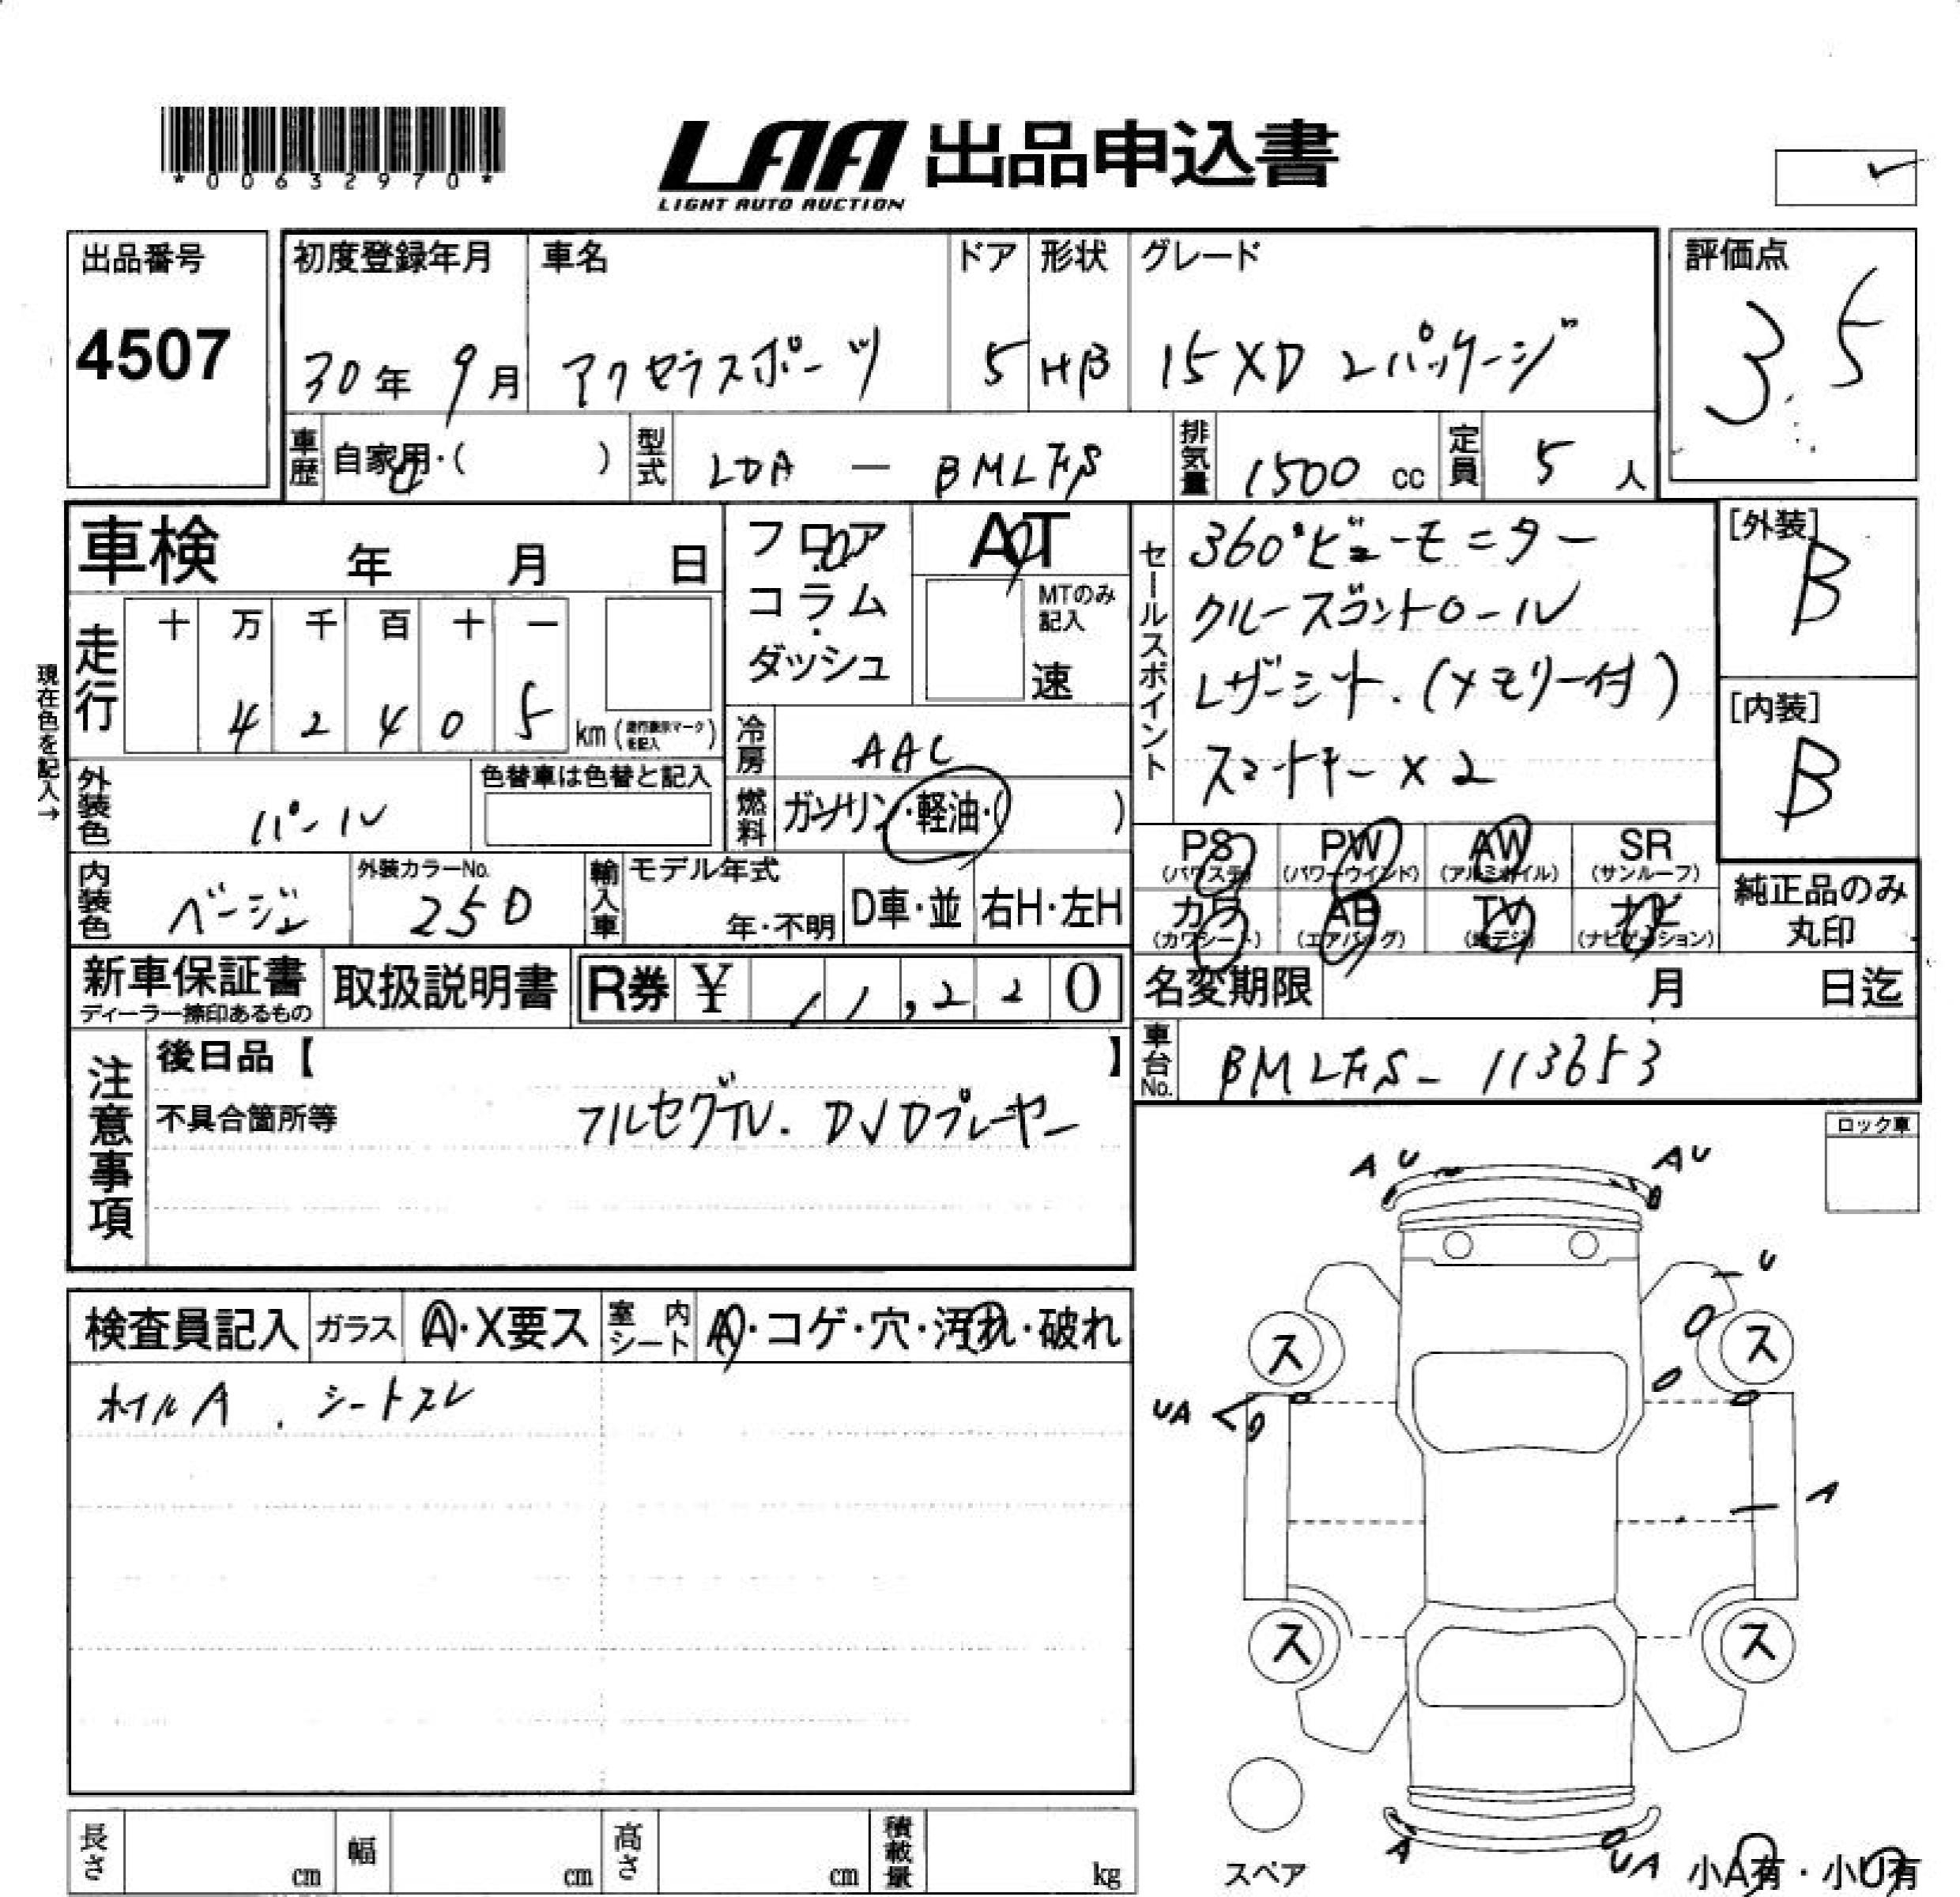 *00632970*
LAA 出品申込書
LIGHT AUTO AUCTION
出品番号
4507
初度登録年月 車名 ドア 形状 グレード
30年 9月 アクセラスポーツ 5 HB 15XD Lパッケージ
評価点
3.5
車歴 自家用・( ) 型式 LDA — BMLFS 排気量 1500 cc 定員 5 人
車検 年 月 日
フロア・コラム・ダッシュ
AT
MTのみ記入
速
セールスポイント
360°ビューモニター
クルーズコントロール
レザーシート.(メモリー付)
スマートキー×2
[外装]
B
[内装]
B
現在色を記入→
走行 十 万 千 百 十 一
4 2 4 0 5 km(走行表示マークを記入)
冷房 AAC
燃料 ガソリン・軽油・( )
外装色 パール
色替車は色替と記入
内装色 ベージュ
外装カラーNo.
25D
輸入車 モデル年式
年・不明 D車・並 右H・左H
PS (パワステ) PW (パワーウインド) AW (アルミホイル) SR (サンルーフ)
カワ (カワシート) AB (エアバッグ) TV (地デジ) ナビ (ナビゲーション)
純正品のみ
丸印
新車保証書
ディーラー捺印あるもの
取扱説明書
R券 ¥ 11,220
名変期限 月 日迄
車台No. BMLFS-113653
注意事項
後日品【 】
不具合箇所等 フルセグTV. DVDプレーヤー
ロック車
検査員記入 ガラス A・X要ス 室内シート A・コゲ・穴・汚れ・破れ
ホイルA . シートスレ
A U
A U
U
ス
ス
UA
A
ス
ス
スペア
A
UA
小A有・小U有
長さ cm 幅 cm 高さ cm 積載量 kg